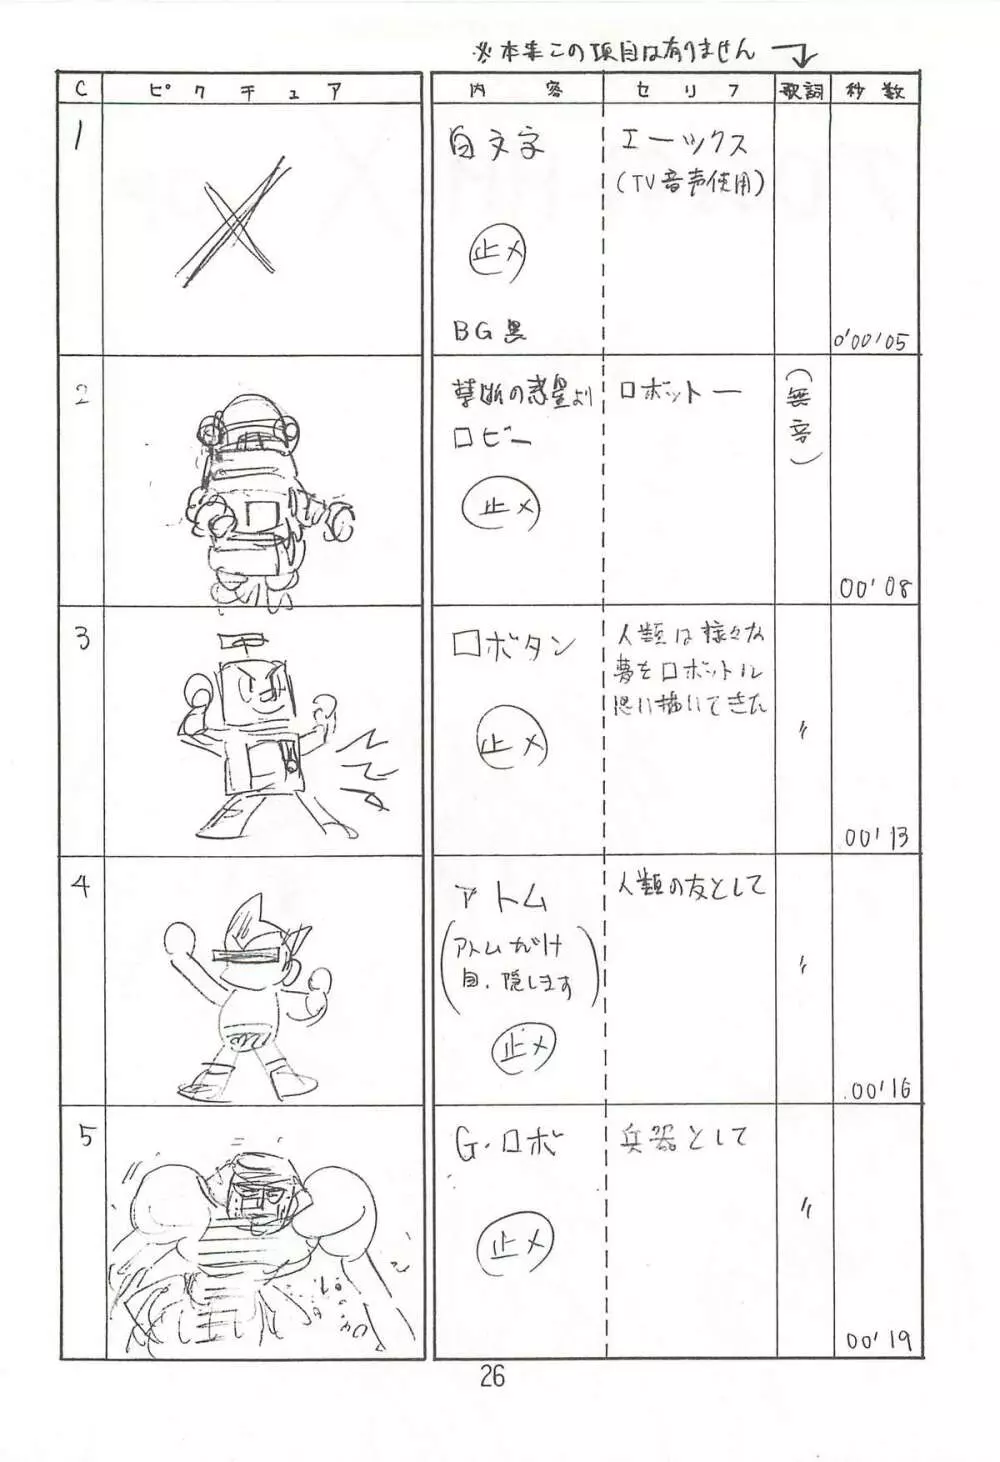 ※本来この項目は有りません
C ピクチュア 内容 セリフ 歌詞 秒数
1
白文字
止メ
BG黒
エーックス
(TV音声使用)
0'00'05
2
禁断の惑星より
ロビー
止メ
ロボットー
(無音)
00'08
3
ロボタン
止メ
人類は様々な
夢をロボットに
思い描いてきた
〃
00'13
4
アトム
(アトムだけ
目、隠します)
止メ
人類の友として
〃
00'16
5
G・ロボ
止メ
兵器として
〃
00'19
26